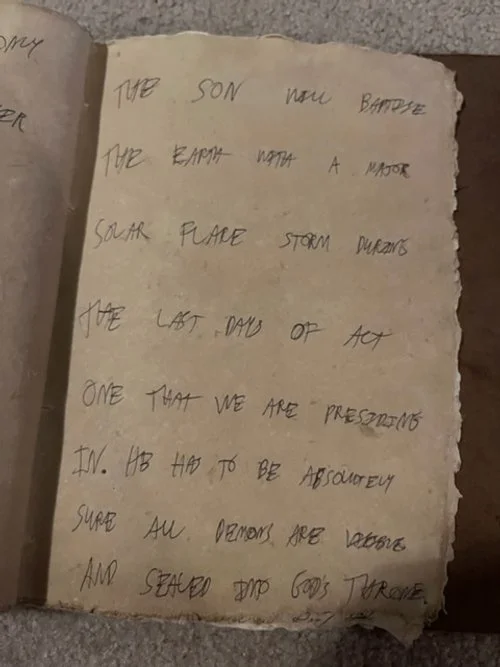 DALY
ER
THE SON WILL BAPTIZE
THE EARTH WITH A MAJOR
SOLAR FLARE STORM DURING
THE LAST DAYS OF ACT
ONE THAT WE ARE PRESIDING
IN. HE HAD TO BE ABSOLUTELY
SURE ALL DEMONS ARE
AND SEALED INTO GOD'S THRONE.